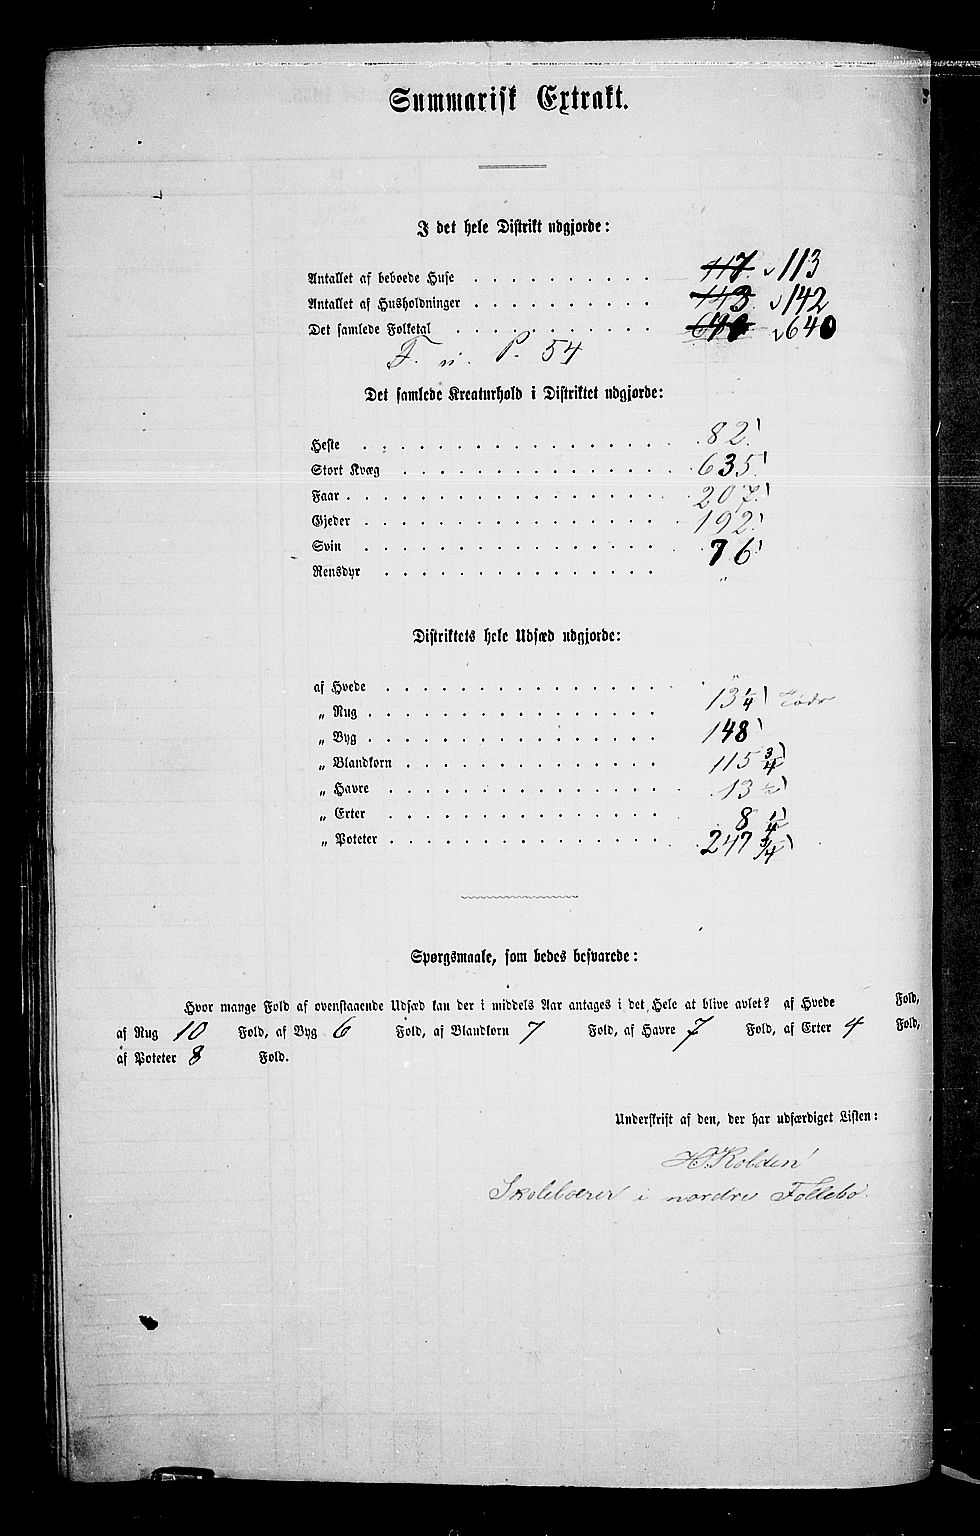 Summarisk Extrakt.
I det hele Distrikt udgjorde:
Antallet af beboede Huse . . . . . . . . 117 v 113
Antallet af Husholdninger . . . . . . . . 143 v 142
Det samlede Folketal . . . . . . . . v 640
F. n. P. 54
Det samlede Kreaturhold i Distriktet udgjorde:
Heste . . . . . . . . 82
Stort Kvæg . . . . . . . . 635
Faar . . . . . . . . 207
Gjeder . . . . . . . . 192
Svin . . . . . . . . 76
Rensdyr . . . . . . . . „
Distriktets hele Udsæd udgjorde:
af Hvede . . . . . . . . „
„ Rug . . . . . . . . 13 1/4 Tødr
„ Byg . . . . . . . . 148
„ Blandkorn . . . . . . . . 115 3/4
„ Havre . . . . . . . . 13 1/2
„ Erter . . . . . . . . 8 1/4
„ Poteter . . . . . . . . 247 3/4
Spørgsmaale, som bedes besvarede:
Hvor mange Fold af ovenstaaende Udsæd kan der i middels Aar antages i det Hele at blive avlet? af Hvede Fold,
af Rug 10 Fold, af Byg 6 Fold, af Blandkorn 7 Fold, af Havre 7 Fold, af Erter 4 Fold,
af Poteter 8 Fold.
Underskrift af den, der har udfærdiget Listen:
H. Kolden
Skolelærer i nordre Follebo.